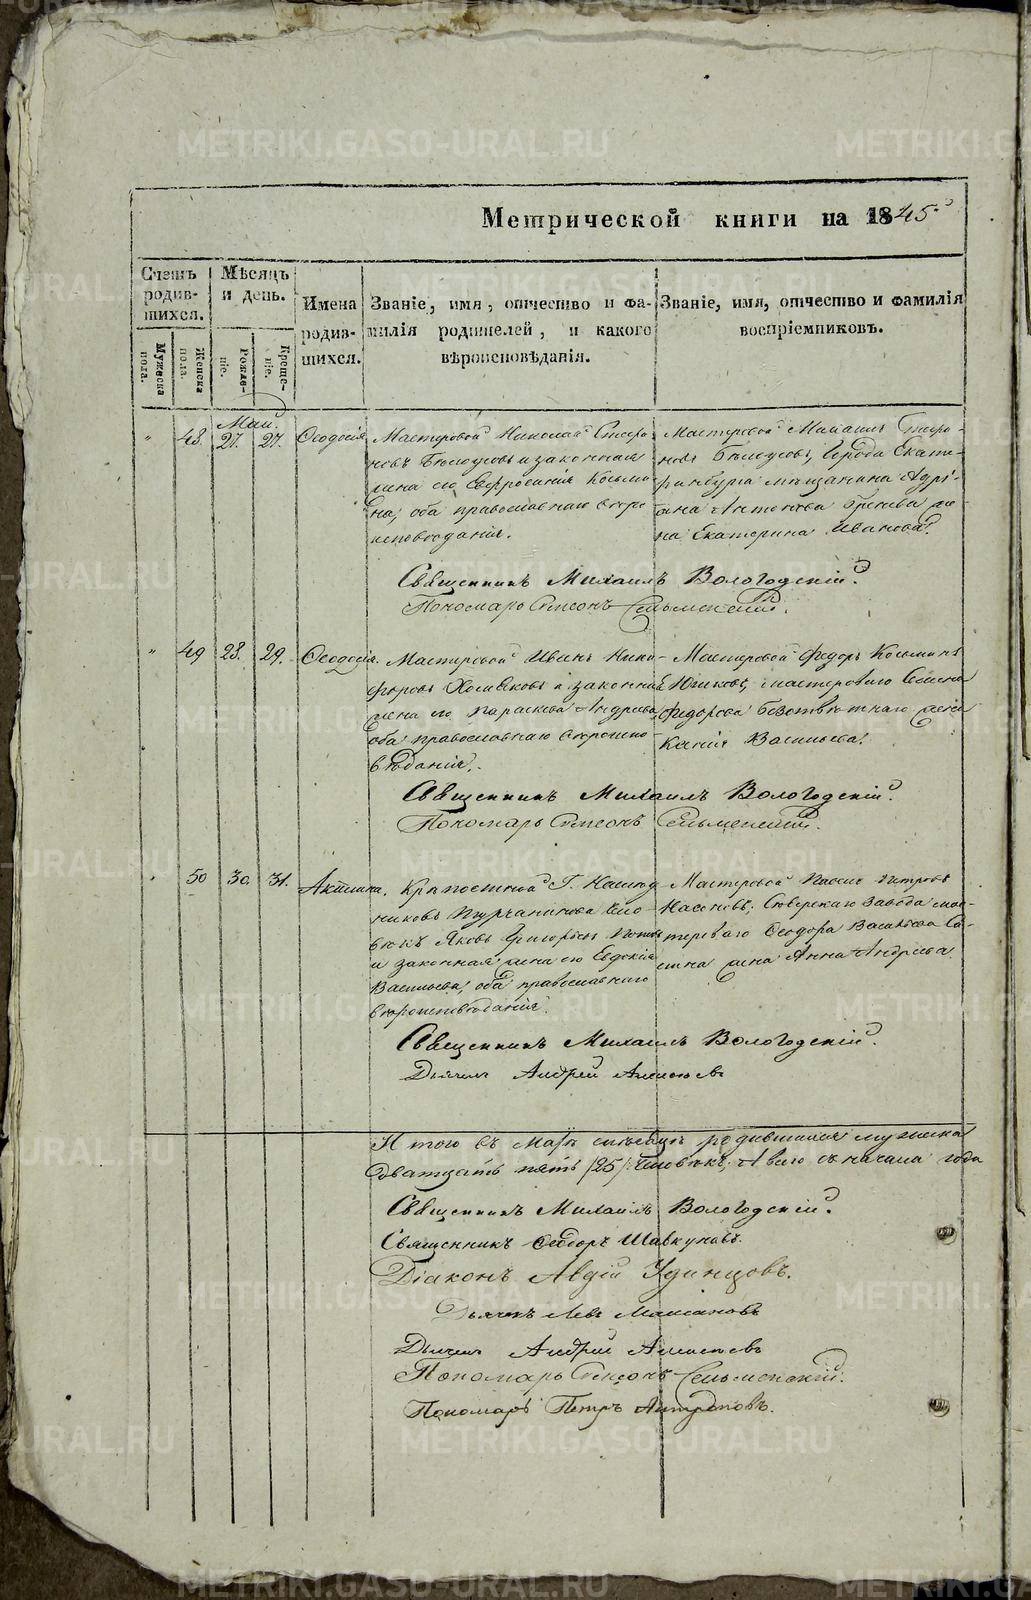 METRIKI.GASO-URAL.RU
Метрической книги на 1845
Счетъ родив-шихся.
Мѣсяцъ и день.
Имена родив-шихся.
Званіе, имя, отчество и фа-милія родителей, и какого вѣроисповѣданія.
Званіе, имя, отчество и фамилія воспріемниковъ.
Мужеска пола.
Женска пола.
Рожде-ніе.
Креще-ніе.
Май.
" 48. 27. 27. Ѳеодосія
Мастеровой Николай
и законная
жена его Евфросинія Козьми-
на, оба православнаго
исповѣданія.
Мастеровой Михаилъ
города Екате-
ринбурга мѣщанина Адрі-
ана Антонова же-
на Екатерина Иванова.
Священникъ Михаилъ Вологодскій.
Пономарь Симеонъ Сельменскій.
" 49 28. 29. Ѳеодосія.
Мастеровой Иванъ Ники-
форовъ Хомяковъ и законная
жена его Параскева Андреева,
оба православнаго вѣроиспо-
вѣданія.
Мастеровой Ѳедоръ Козьминъ
мастероваго
Ѳедорова жена
Ксенія Васильева.
Священникъ Михаилъ Вологодскій.
Пономарь Симеонъ Сельменскій.
" 50 30. 31. Акилина.
Крѣпостной Г. Наслѣд-
никовъ Турчанинова чело-
вѣкъ Яковъ Григорьевъ
и законная жена его Евдокія
Васильева, оба православнаго
вѣроисповѣданія.
Мастеровой Петровъ
завода мас-
тероваго Ѳеодора Васильева
жена Анна Андреева
Священникъ Михаилъ Вологодскій.
Дьячекъ Андрей
Итого въ Маѣ мѣсяцѣ родившихся мужеска
двадцать пять /25/ человѣкъ, А всего съ начала года
Священникъ Михаилъ Вологодскій.
Священникъ Ѳеодоръ Шавкуновъ.
Діаконъ Авдій Удинцовъ.
Дьячекъ Левъ
Дьячекъ Андрей
Пономарь Симеонъ Сельменскій.
Пономарь Петръ Антроповъ.